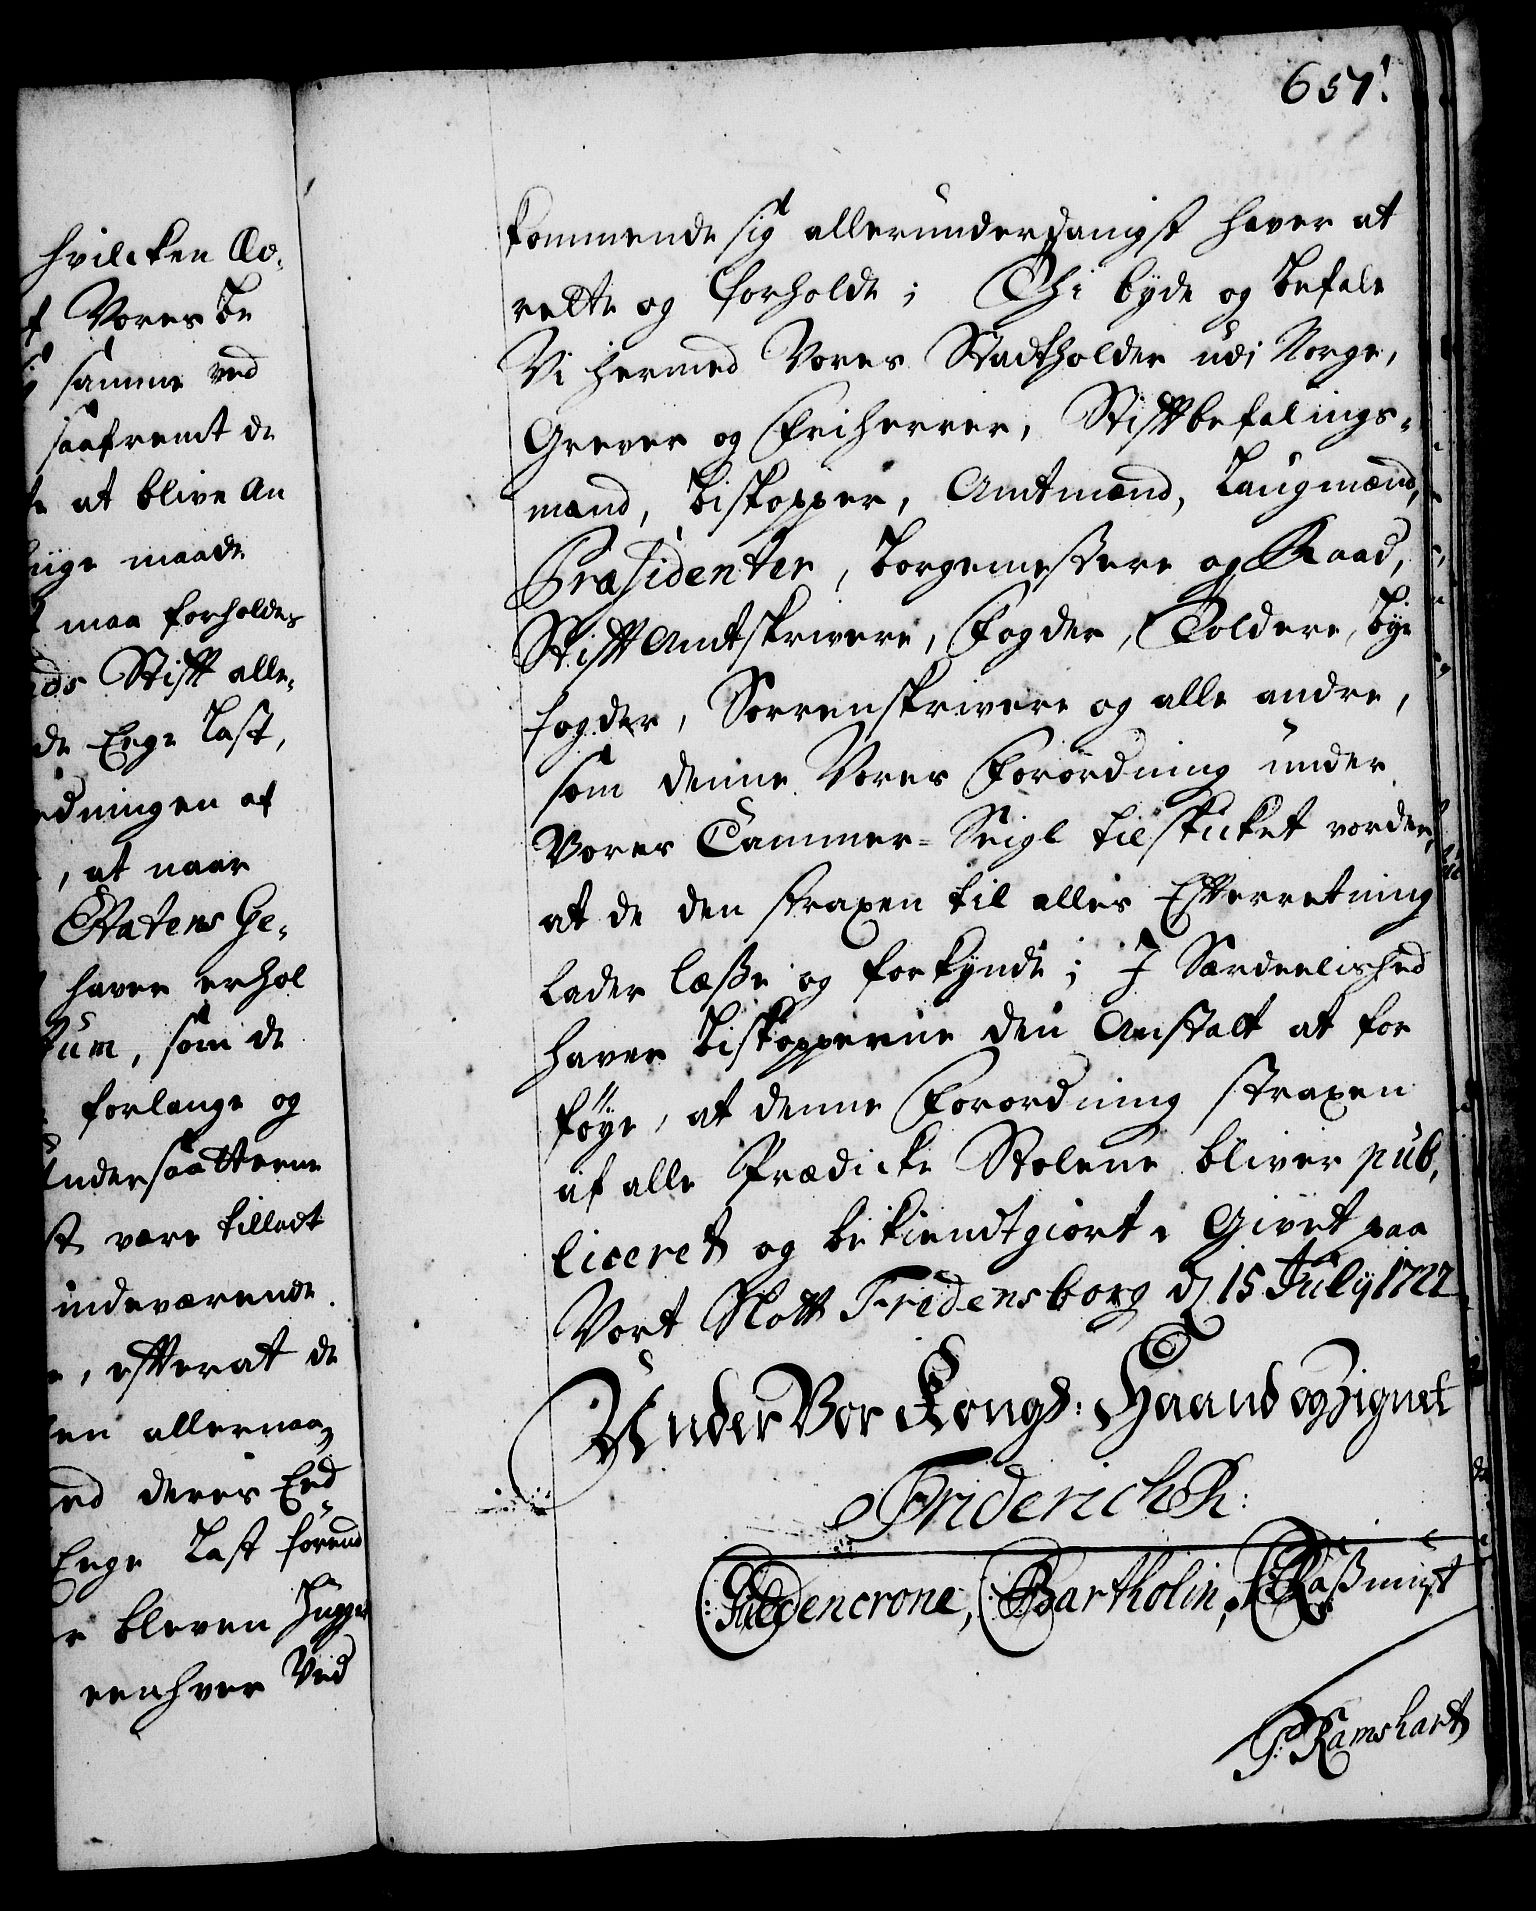 hvilcken Ao¬
f Vores Be
samme ved
saafremt de
at blive an
uige maade
maa forholdes
ds Stifft alle¬
de Eege Last,
edningen af
, at naar
Statens Ge¬
haver erhol
tum, som de
forlange og
undersaatterne
st være tilladt
indeværende
, efterat de
en allernaa¬
ed deres Eed
Eege Last förend
e bleven hugge
eenhver Ved
657.
kommende sig allerunderdanigst haver at
rette og forholde; Thi byde og befale
Vi hermed Vores Stadtholder udi Norge,
Grever og Friherrer, Stifftbefalings¬
mænd, Biskopper, Amtmænd, Laugmænd,
Præsidenter, Borgemestere og Raad,
StifftAmtskrivere, Fogder, Toldere, Bye
fogder, Sorrenskrivere og alle andre,
som denne Vores Forordning under
Vores Cammer-Seigl tilskicket vorder,
at de den straxen til alles Efterretning
lader læsse og forkynde; I Særdeelished
haver Biskopperne den Anstalt at for
föye, at denne Forordning straxen
af alle Prædicke Stolene bliver pub¬
liceret og bekiendtgiort. Givet paa
Vort Slott Fredensborg d 15 July 1722
Under Vor Kongl: Haand og Signet
Friderich R:
Güldencrone, Bartholin, Rassmust
P: Ramshart